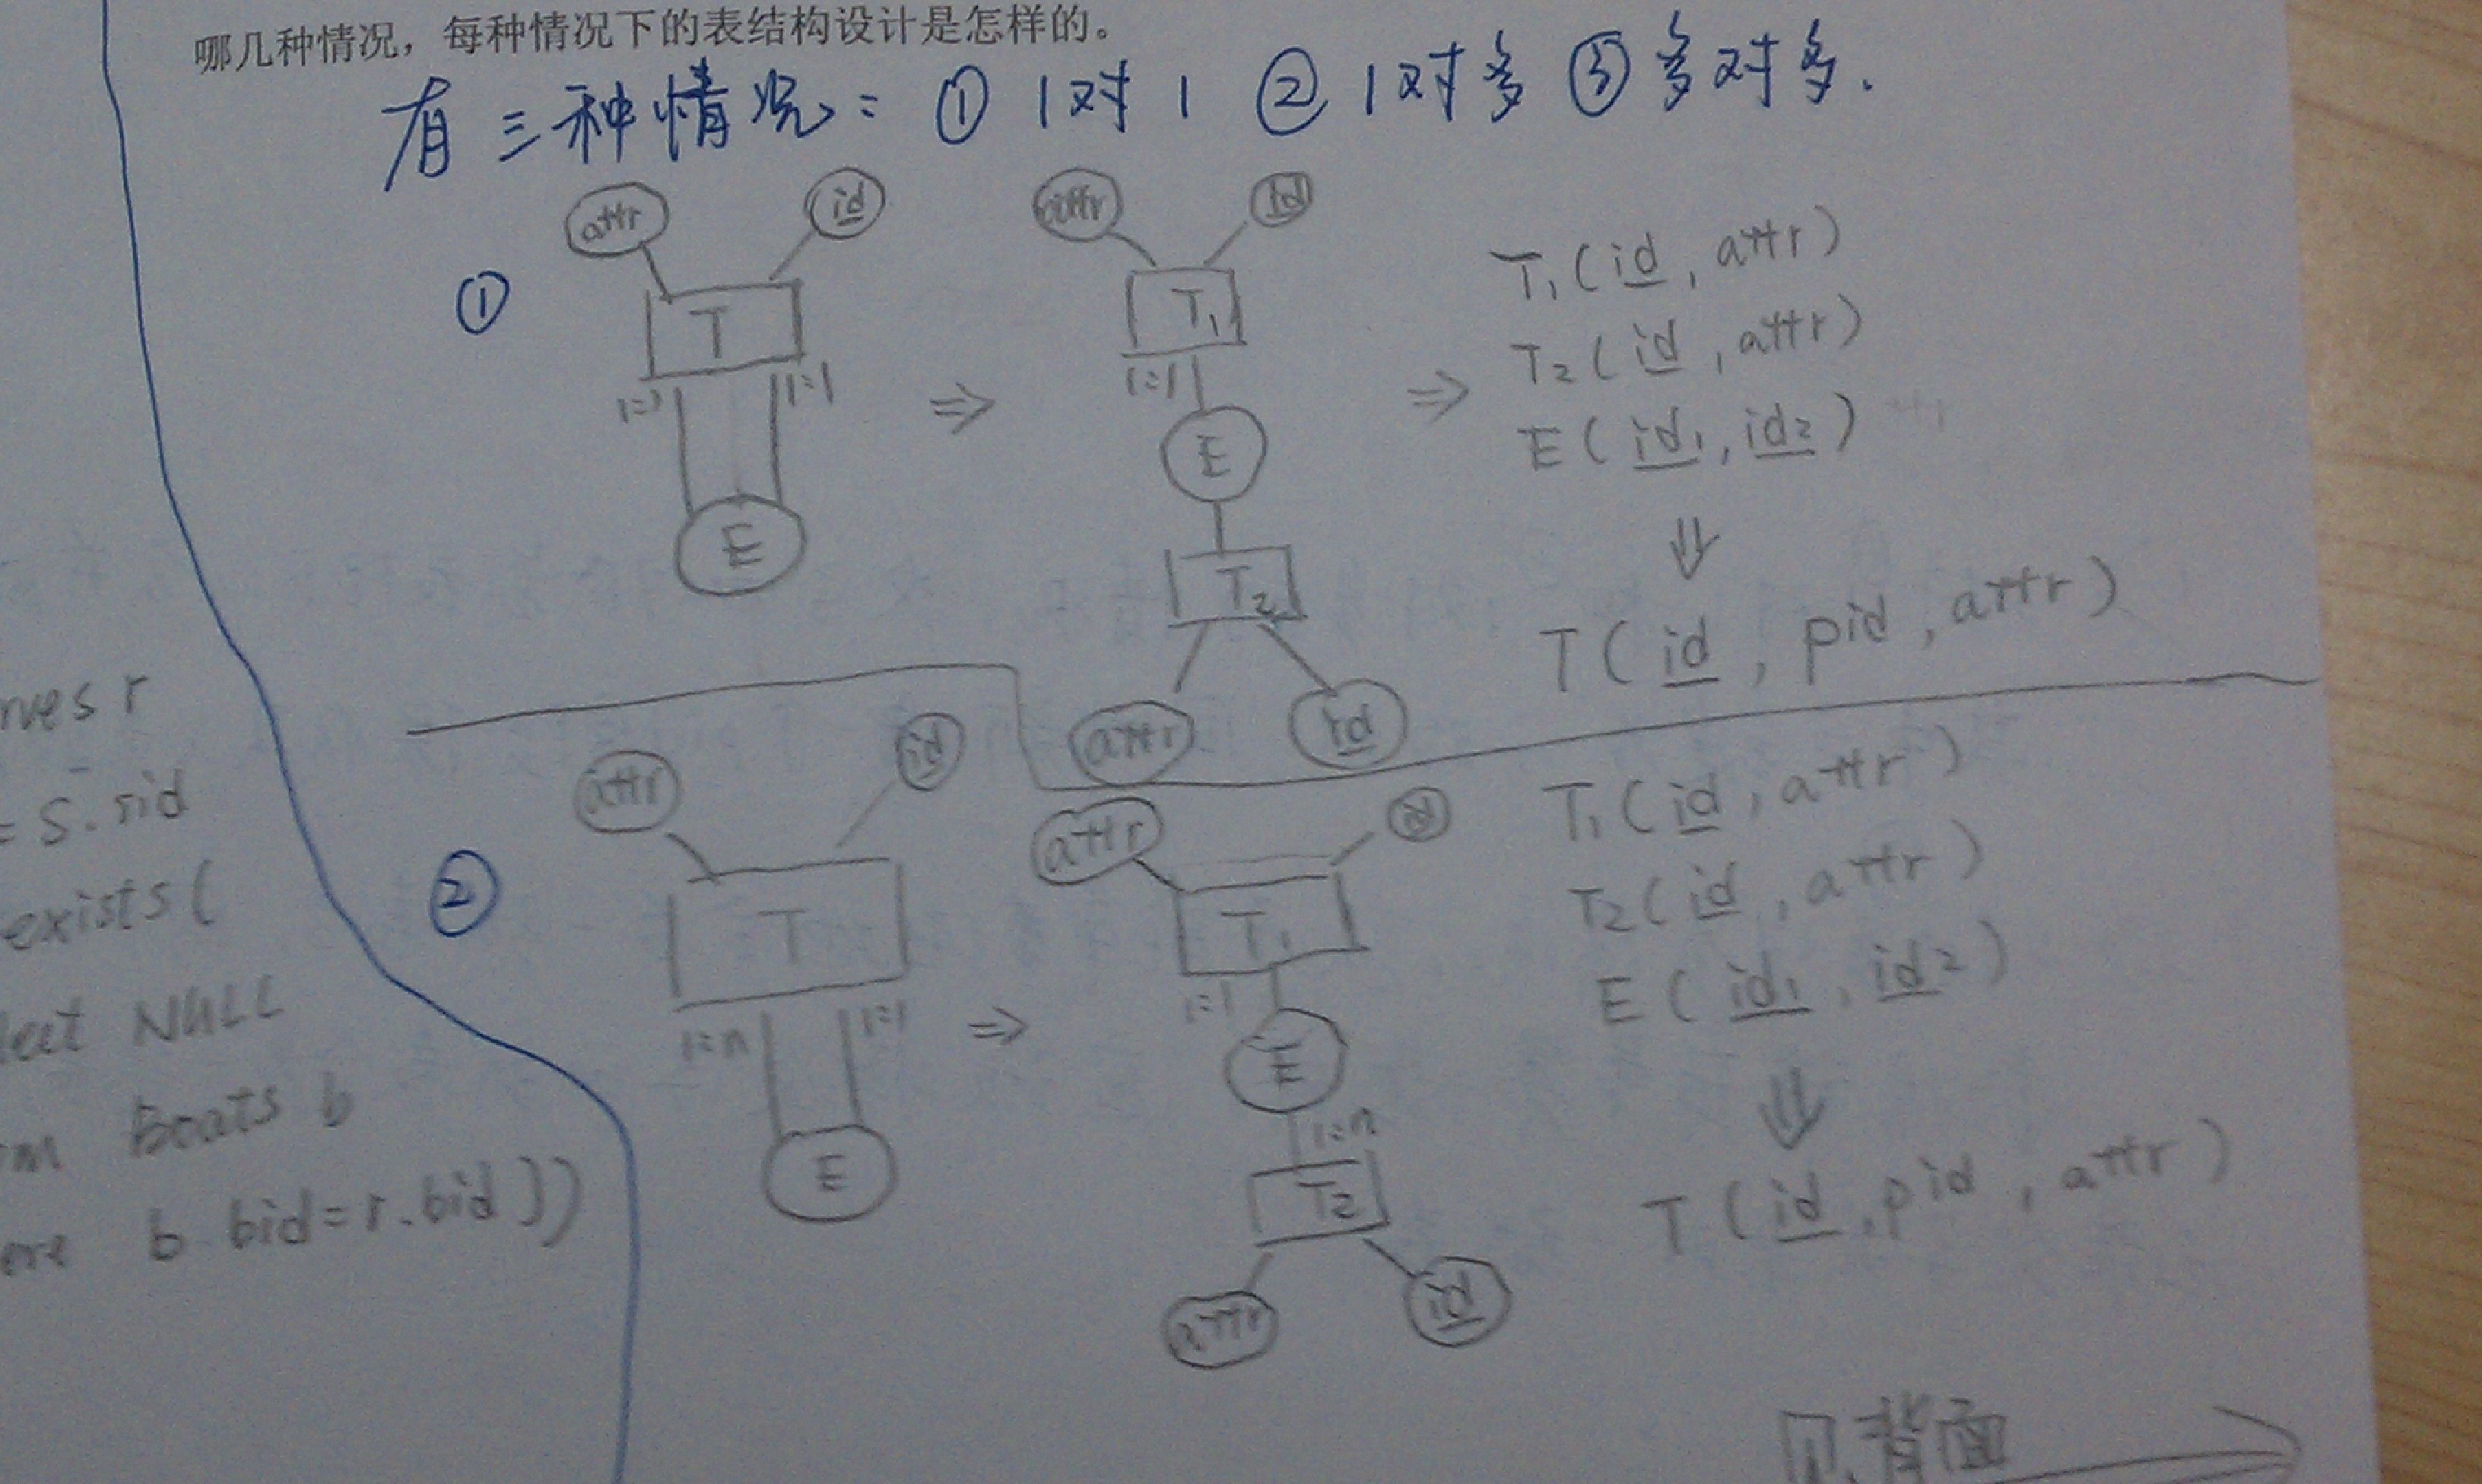 哪几种情况，每种情况下的表结构设计是怎样的。
有三种情况: ① 1对1 ② 1对多 ③ 多对多.
①
attr id
T
1:1 1:1
E
⇒
attr id
T₁
1:1
E
T₂
attr id
⇒
T₁(id, attr)
T₂(id, attr)
E(id₁, id₂)
⇓
T(id, pid, attr)
②
attr id
T
1:n 1:1
E
⇒
attr id
T₁
1:1
E
1:n
T₂
attr id
T₁(id, attr)
T₂(id, attr)
E(id₁, id₂)
⇓
T(id, pid, attr)
见背面
rves r
= S.sid
exists(
lect NULL
om Boats b
ere b bid=r.bid))